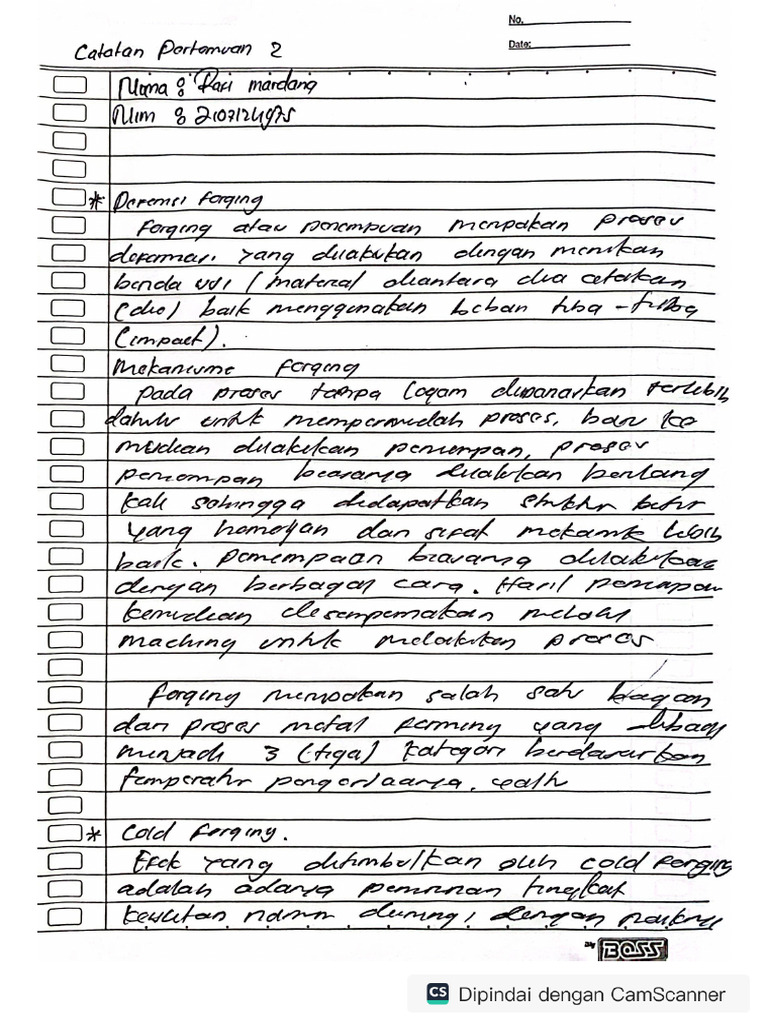 No.
Date:
Catatan Pertemuan 2
Nama : Rafi mardang
Nim : 2107124975
* Defenisi forging
Forging atau penempaan merupakan proses
deformasi yang dilakukan dengan menekan
benda uji / material diantara dua cetakan
(die) baik menggunakan beban tiba-tiba
(impact).
Mekanisme forging
pada proses tempa logam dipanaskan terlebih
dahulu untuk mempermudah proses, baru ke
mudian dilakukan penempaan, proses
penempaan biasanya dilakukan berulang
kali sehingga didapatkan struktur butir
yang homogen dan sifat mekanik lebih
baik. Penempaan biasanya dilakukan
dengan berbagai cara. Hasil penempaan
kemudian disempurnakan melalui
maching untuk melakukan proses
Forging merupakan salah satu bagian
dari proses metal forming yang dibagi
menjadi 3 (tiga) kategori berdasarkan
temperatur pengerjaannya. yaitu
* Cold forging.
Efek yang ditimbulkan oleh cold forging
adalah adanya penurunan tingkat
keuletan namun diiringi dengan naiknya
by BOSS
CS Dipindai dengan CamScanner